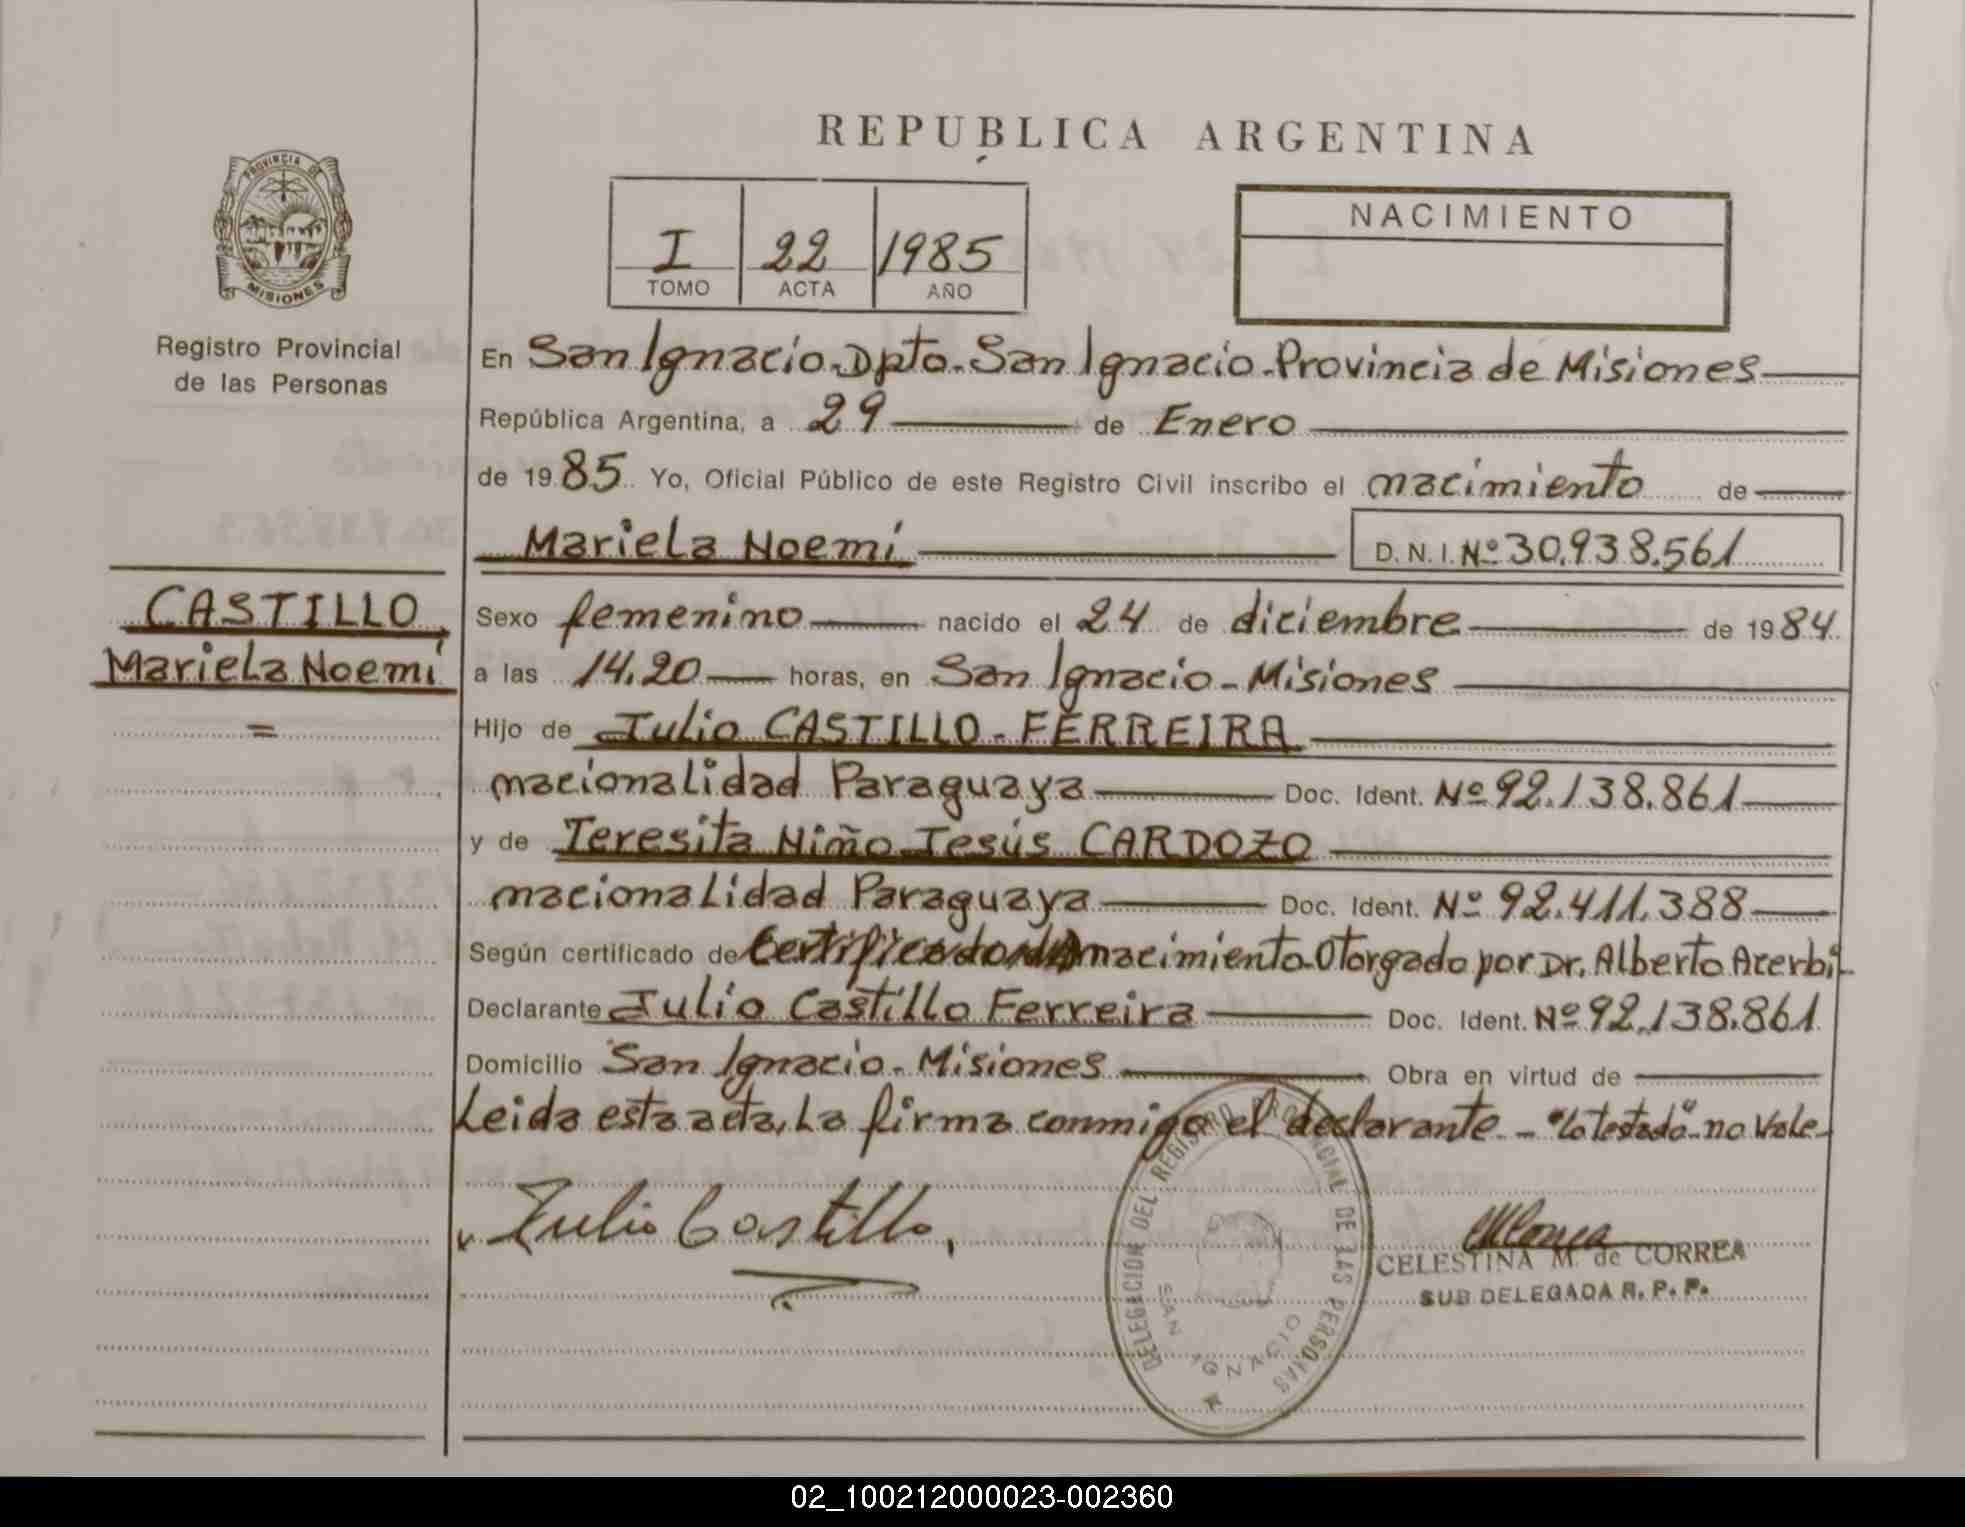 REPUBLICA ARGENTINA
PROVINCIA DE
MISIONES
Registro Provincial
de las Personas
I 22 1985
TOMO ACTA AÑO
NACIMIENTO
En San Ignacio-Dpto-San Ignacio-Provincia de Misiones
República Argentina, a 29 de Enero
de 1985 Yo, Oficial Público de este Registro Civil inscribo el nacimiento de
Mariela Noemí D.N.I. Nº 30.938.561
CASTILLO,
Mariela Noemí
=
Sexo femenino nacido el 24 de diciembre de 1984
a las 14.20 horas, en San Ignacio - Misiones
Hijo de Julio CASTILLO-FERREIRA
nacionalidad Paraguaya Doc. Ident. Nº 92.138.861
y de Teresita Niño Jesús CARDOZO
nacionalidad Paraguaya Doc. Ident. Nº 92.411.388
Según certificado de nacimiento-Otorgado por Dr. Alberto Acerbi-
Declarante Julio Castillo Ferreira Doc. Ident. Nº 92.138.861
Domicilio San Ignacio - Misiones Obra en virtud de
Leida esta acta, La firma conmigo el declarante - "Lo testado" no Vale-
Julio Castillo
DELEGACION DEL REGISTRO PROVINCIAL DE LAS PERSONAS
SAN IGNACIO
CELESTINA M. de CORREA
SUB DELEGADA R. P. P.
02_100212000023-002360